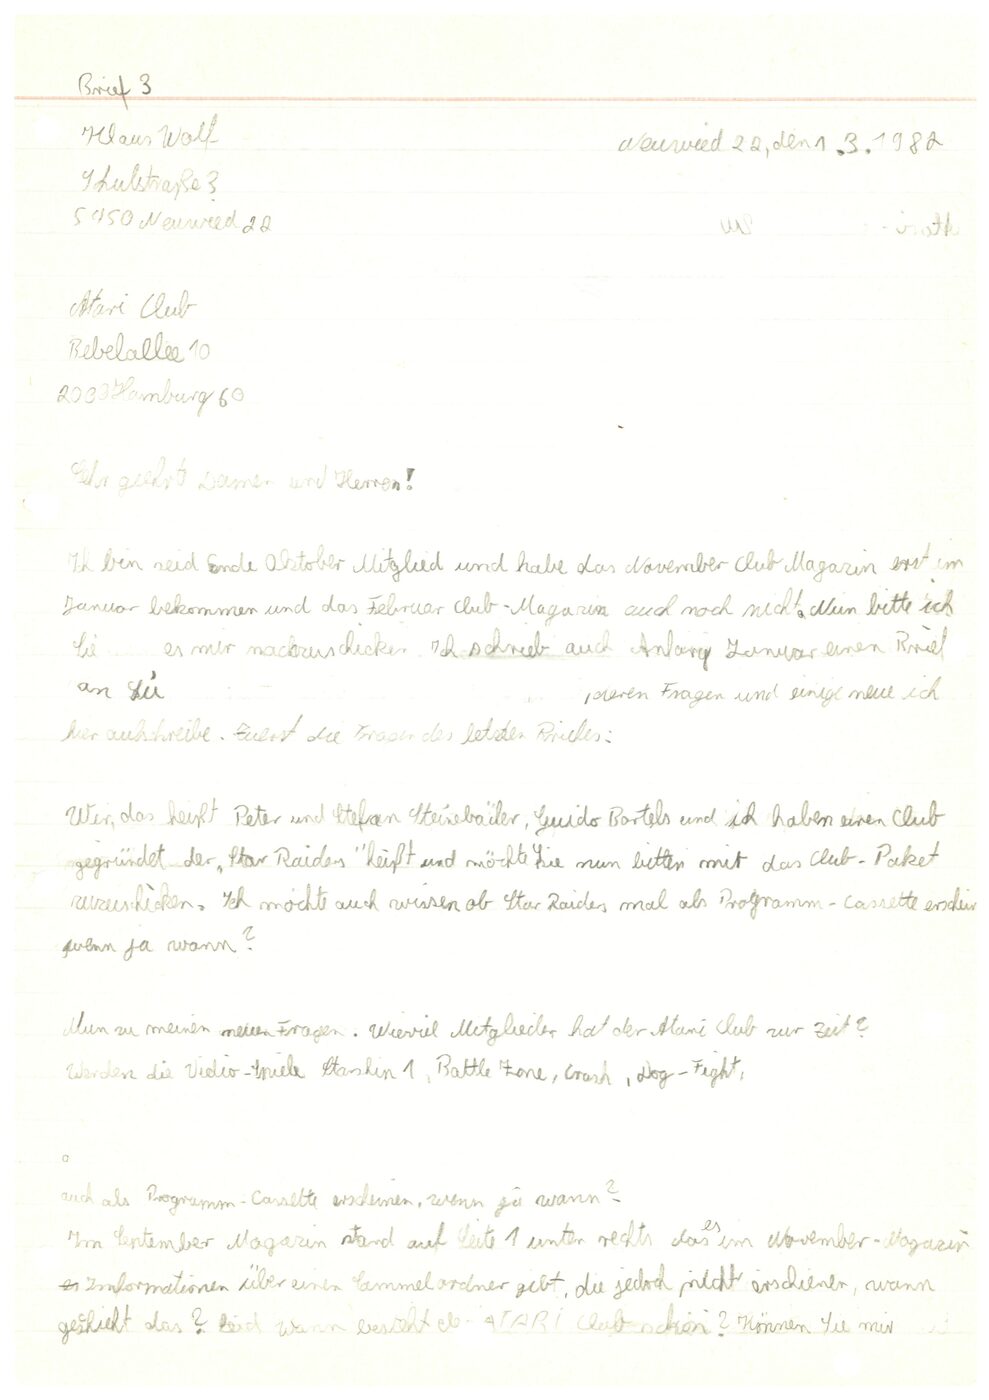 Brief 3
Klaus Wolf
Neuwied 22, den 1.3.1982
Schulstraße 3
5450 Neuwied 22
Atari Club
Bebelallee 10
2000 Hamburg 60
Sehr geehrt Damen und Herren!
Ich bin seid Ende Oktober Mitglied und habe das November Club Magazin erst im
Januar bekommen und das Februar Club-Magazin auch noch nicht. Nun bitte ich
Sie es mir nachzuschicken. Ich schrieb auch Anfang Januar einen Brief
an Sie , deren Fragen und einige neue ich
hier aufschreibe. Zuerst die Fragen des letzten Briefes:
Wir, das heißt Peter und Stefan, Guido Bartels und ich haben einen Club
gegründet der „Star Raiders" heißt und möchte Sie nun bitten mir das Club-Paket
zuzuschicken. Ich möchte auch wissen ob Star Raiders mal als Programm-Cassette
wenn ja wann?
Nun zu meinen neuen Fragen. Wieviel Mitglieder hat der Atari Club zur Zeit?
Werden die Vidio-Spiele Starship 1, Battle Zone, Crash, Dog-Fight,
auch als Programm-Cassette erscheinen, wenn ja wann?
Im September Magazin stand auf Seite 1 unten rechts das es im November-Magazin
Informationen über einen Sammelordner gibt, die jedoch nicht erschienen, wann
geschieht das? Seid wann besteht de ATARI Club schon? Können Sie mir